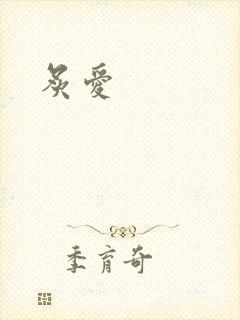 炙愛
季育奇